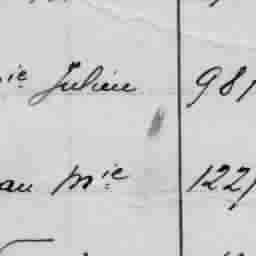 ie Julien 981
au Mie 122